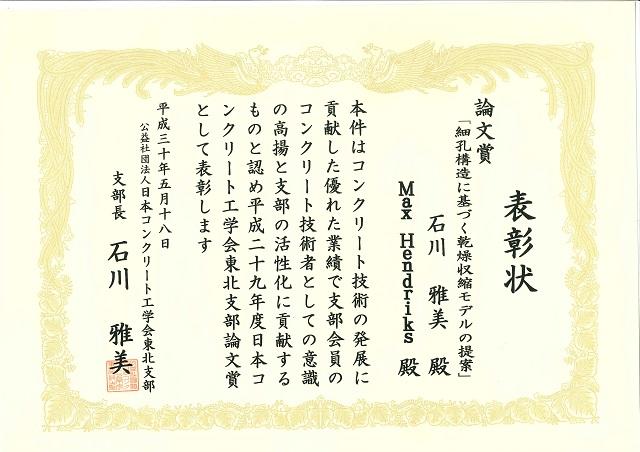 表彰状
論文賞
「細孔構造に基づく乾燥収縮モデルの提案」
石川 雅美 殿
Max Hendriks 殿
本件はコンクリート技術の発展に
貢献した優れた業績で支部会員の
コンクリート技術者としての意識
の高揚と支部の活性化に貢献する
ものと認め平成二十九年度日本コ
ンクリート工学会東北支部論文賞
として表彰します
平成三十年五月十八日
公益社団法人日本コンクリート工学会東北支部
支部長 石川 雅美